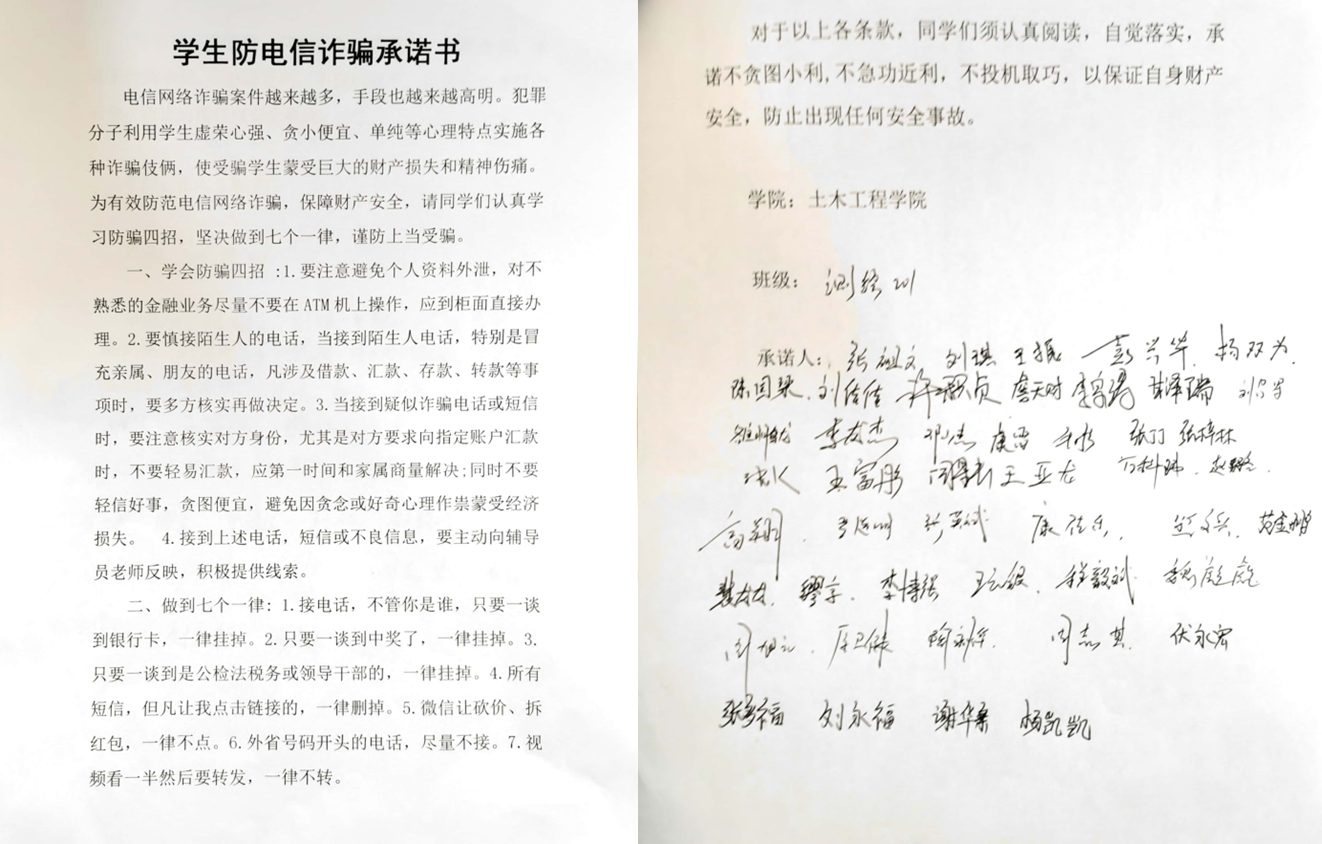 学生防电信诈骗承诺书
电信网络诈骗案件越来越多，手段也越来越高明。犯罪
分子利用学生虚荣心强、贪小便宜、单纯等心理特点实施各
种诈骗伎俩，使受骗学生蒙受巨大的财产损失和精神伤痛。
为有效防范电信网络诈骗，保障财产安全，请同学们认真学
习防骗四招，坚决做到七个一律，谨防上当受骗。
一、学会防骗四招 :1.要注意避免个人资料外泄，对不
熟悉的金融业务尽量不要在 ATM 机上操作，应到柜面直接办
理。2.要慎接陌生人的电话，当接到陌生人电话，特别是冒
充亲属、朋友的电话，凡涉及借款、汇款、存款、转款等事
项时，要多方核实再做决定。3.当接到疑似诈骗电话或短信
时，要注意核实对方身份，尤其是对方要求向指定账户汇款
时，不要轻易汇款，应第一时间和家属商量解决;同时不要
轻信好事，贪图便宜，避免因贪念或好奇心理作祟蒙受经济
损失。 4.接到上述电话，短信或不良信息，要主动向辅导
员老师反映，积极提供线索。
二、做到七个一律: 1.接电话，不管你是谁，只要一谈
到银行卡，一律挂掉。2.只要一谈到中奖了，一律挂掉。3.
只要一谈到是公检法税务或领导干部的，一律挂掉。4.所有
短信，但凡让我点击链接的，一律删掉。5.微信让砍价、拆
红包，一律不点。6.外省号码开头的电话，尽量不接。7.视
频看一半然后要转发，一律不转。
对于以上各条款，同学们须认真阅读，自觉落实，承
诺不贪图小利,不急功近利，不投机取巧，以保证自身财产
安全，防止出现任何安全事故。
学院：土木工程学院
班级： 测绘 211
承诺人： 张祖文 刘琪 王振 彭兴华 杨双为
陈国梁 刘佳佳 詹天时
李友杰 邓杰 康浩 张丁 张梓林
王富彤 王亚龙
高翔 康佳乐
缪宇 李博强 程毅斌
周旭元 周志其 伏永宏
刘永福 谢华录 杨凯凯